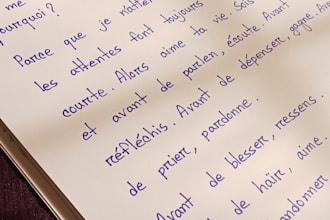 me
Pourquoi ?
Parce que je n'atten
les attentes font toujours
courte. Alors aime ta vie. Sois
et avant de parler, écoute. Avant
réfléchis. Avant de dépenser, gagne. Avan
de prier, pardonne.
Avant de blesser, ressens.
de haïr, aime.
andonner